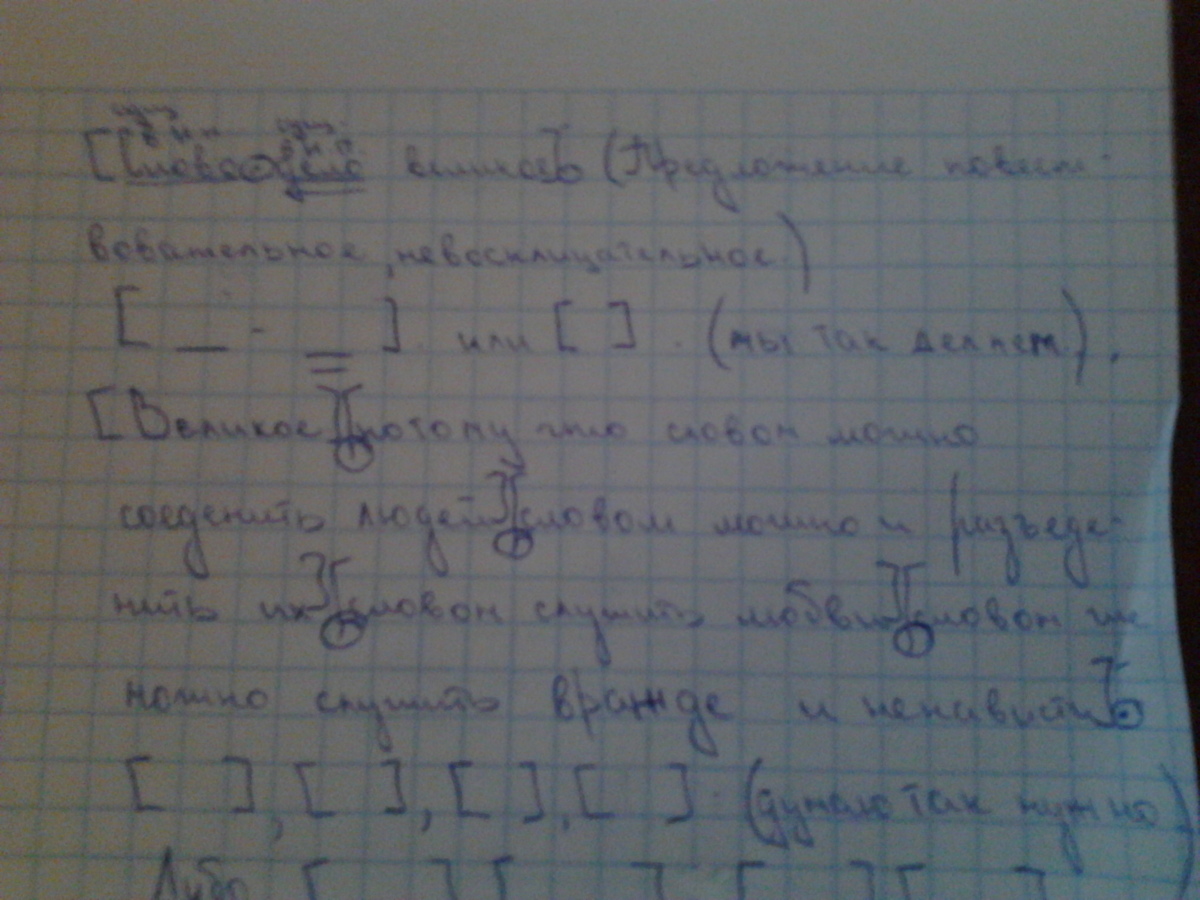 [Слово - дело великое]. (Предложение повест-
вовательное, невосклицательное.)
[ _ - = ]. или [ ]. (мы так делаем).
[Великое], [потому что словом можно
соеденить людей], [словом можно и разъеде-
нить их], [словом служить любви], [словом же
можно служить вражде и ненависти].
[ ], [ ], [ ], [ ]. (думаю так нужно)
Либо [ ] [ ] [ ] [ ]